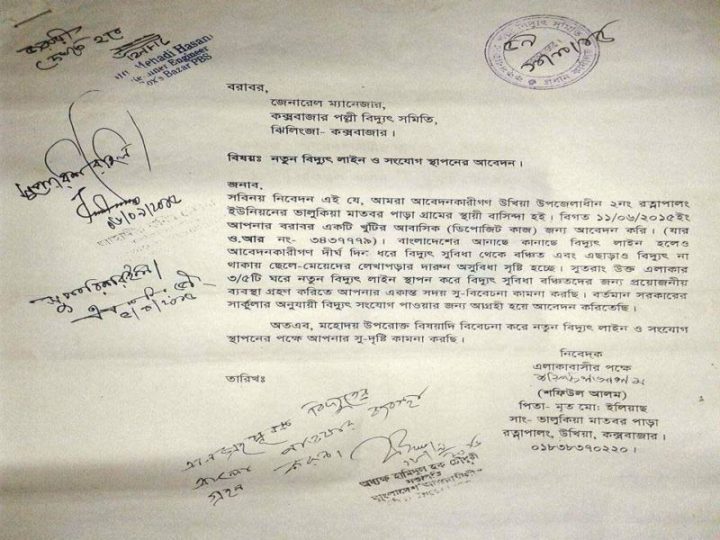 Mehadi Hasan
Engineer
Bazar PBS
বরাবর,
জেনারেল ম্যানেজার,
কক্সবাজার পল্লী বিদ্যুৎ সমিতি,
ঝিলিংজা- কক্সবাজার।
বিষয়ঃ নতুন বিদ্যুৎ লাইন ও সংযোগ স্থাপনের আবেদন।
জনাব,
সবিনয় নিবেদন এই যে, আমরা আবেদনকারীগণ উখিয়া উপেজেলাধীন ২নং রত্নাপালং
ইউনিয়নের তালুকিয়া মাতবর পাড়া গ্রামের স্থায়ী বাসিন্দা হই। বিগত ১১/০৬/২০১৫ইং
আপনার বরাবর একটি খুঁটির আবাসিক (ডিপোজিট কাজ) জন্য আবেদন করি। (যার
ও.আর নং- ৩৪৩৭৭৭৯)। বাংলাদেশের আনাচে কানাচে বিদ্যুৎ লাইন হলেও
আবেদনকারীগণ দীর্ঘ দিন ধরে বিদ্যুৎ সুবিধা থেকে বঞ্চিত এবং এছাড়াও বিদ্যুৎ না
থাকায় ছেলে-মেয়েদের লেখাপড়ার দারুন অসুবিধা সৃষ্টি হচ্ছে। সুতরাং উক্ত এলাকার
৩/৫টি ঘরে নতুন বিদ্যুৎ লাইন স্থাপন করে বিদ্যুৎ সুবিধা বঞ্চিতদের জন্য প্রয়োজনীয়
ব্যবস্থা গ্রহণ করিতে আপনার একান্ত সদয় সু-বিবেচনা কামনা করছি। বর্তমান সরকারের
সার্কুলার অনুযায়ী বিদ্যুৎ সংযোগ পাওয়ার জন্য আগ্রহী হয়ে আবেদন করিতেছি।
অতএব, মহোদয় উপরোক্ত বিষয়াদি বিবেচনা করে নতুন বিদ্যুৎ লাইন ও সংযোগ
স্থাপনের পক্ষে আপনার সু-দৃষ্টি কামনা করছি।
নিবেদক
এলাকাবাসীর পক্ষে
(শফিউল আলম)
পিতা- মৃত মোঃ ইলিয়াছ
সাং- তালুকিয়া মাতবর পাড়া
রত্নাপালং, উখিয়া, কক্সবাজার।
০১৮৩৮৩৭০২২০।
তারিখঃ
অধ্যক্ষ হামিদুল হক চৌধুরী
সভাপতি